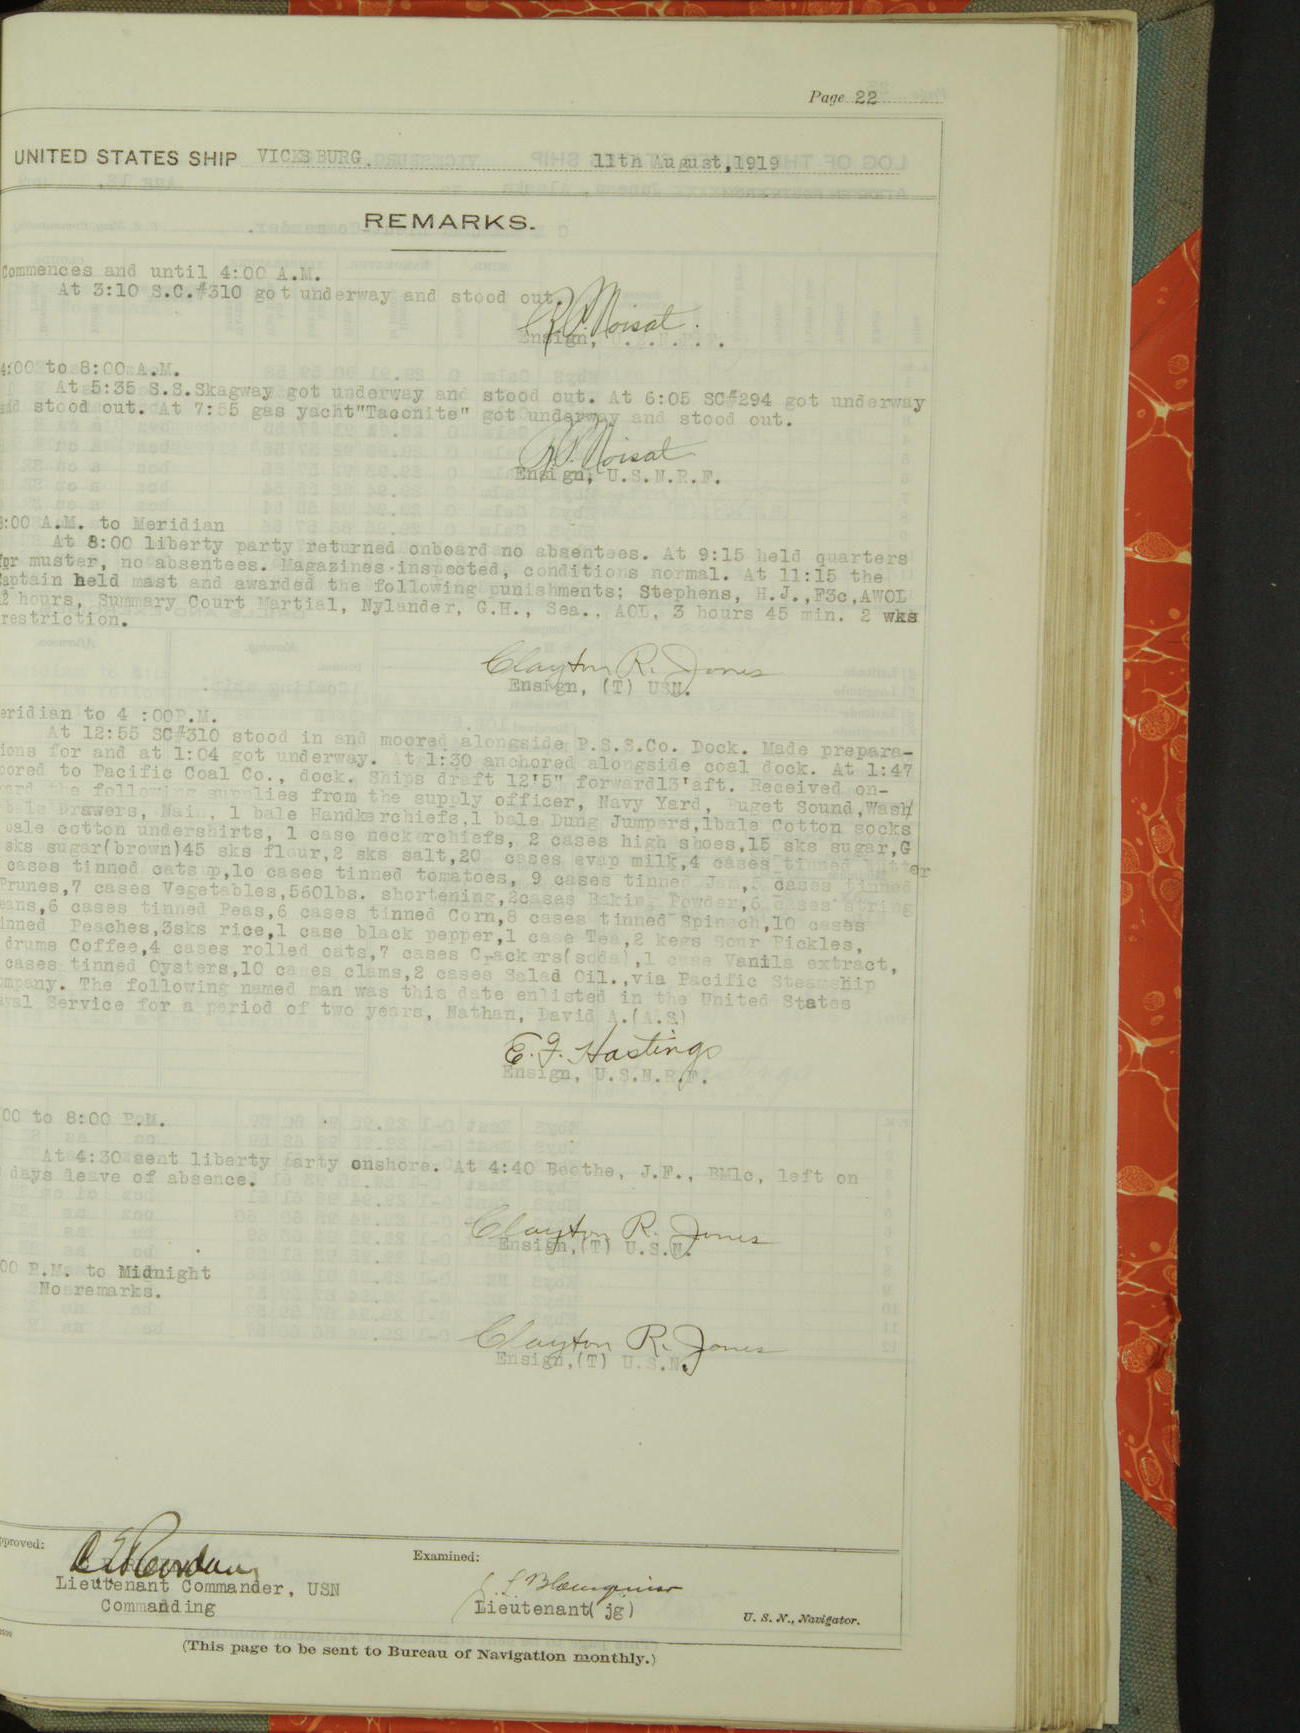 Page 22
UNITED STATES SHIP VICKSBURG. 11th August, 1919
REMARKS.
Commences and until 4:00 A.M.
At 3:10 S.C.#310 got underway and stood out.
Ensign, U.S.N.R.F.
4:00 to 8:00 A.M.
At 5:35 S.S.Skagway got underway and stood out. At 6:05 SC#294 got underway
and stood out. At 7:55 gas yacht"Taconite" got underway and stood out.
Ensign, U.S.N.R.F.
8:00 A.M. to Meridian
At 8:00 liberty party returned onboard no absentees. At 9:15 held quarters
for muster, no absentees. Magazines inspected, conditions normal. At 11:15 the
Captain held mast and awarded the following punishments; Stephens, H.J.,F3c,AWOL
hours, Summary Court Martial, Nylander, G.H., Sea., AOL, 3 hours 45 min. 2 wks
restriction.
Clayton R. Jones
Ensign, (T) USN.
eridian to 4 :00P.M.
At 12:55 SC#310 stood in and moored alongside P.S.S.Co. Dock. Made prepara-
ions for and at 1:04 got underway. At 1:30 anchored alongside coal dock. At 1:47
oored to Pacific Coal Co., dock. Ships draft 12'5" forward13'aft. Received on-
following supplies from the supply officer, Navy Yard, Puget Sound,Wash
bale Drawers, 1 bale Handkerchiefs,1 bale Dung Jumpers,1bale Cotton socks
bale cotton undershirts, 1 case neckerchiefs, 2 cases high shoes,15 sks sugar,G
sks sugar(brown)45 sks flour,2 sks salt,20 cases evap milk,4 cases tinned butter
cases tinned catsup,10 cases tinned tomatoes, 9 cases tinned Jam, cases tinned
Prunes,7 cases Vegetables,560lbs. shortening,2cases Baking Powder,6 cases string
eans,6 cases tinned Peas,6 cases tinned Corn,8 cases tinned Spinach,10 cases
inned Peaches,3sks rice,1 case black pepper,1 case Tea,2 kegs Sour Pickles,
drums Coffee,4 cases rolled oats,7 cases Crackers(soda),1 case Vanila extract,
cases tinned Oysters,10 cases clams,2 cases Salad Oil.,via Pacific Steamship
ompany. The following named man was this date enlisted in the United States
aval Service for a period of two years, Nathan, David A.(A.S)
E. F. Hastings
Ensign, U.S.N.R.F.
00 to 8:00 P.M.
At 4:30 sent liberty party onshore. At 4:40 Beethe, J.F., BM1c, left on
days leave of absence.
Clayton R. Jones
Ensign,(T) U.S.N.
00 P.M. to Midnight
No remarks.
Clayton R. Jones
Ensign,(T) U.S.N.
pproved:
Examined:
Lieutenant Commander, USN
Commanding
Lieutenant( jg)
U. S. N., Navigator.
(This page to be sent to Bureau of Navigation monthly.)